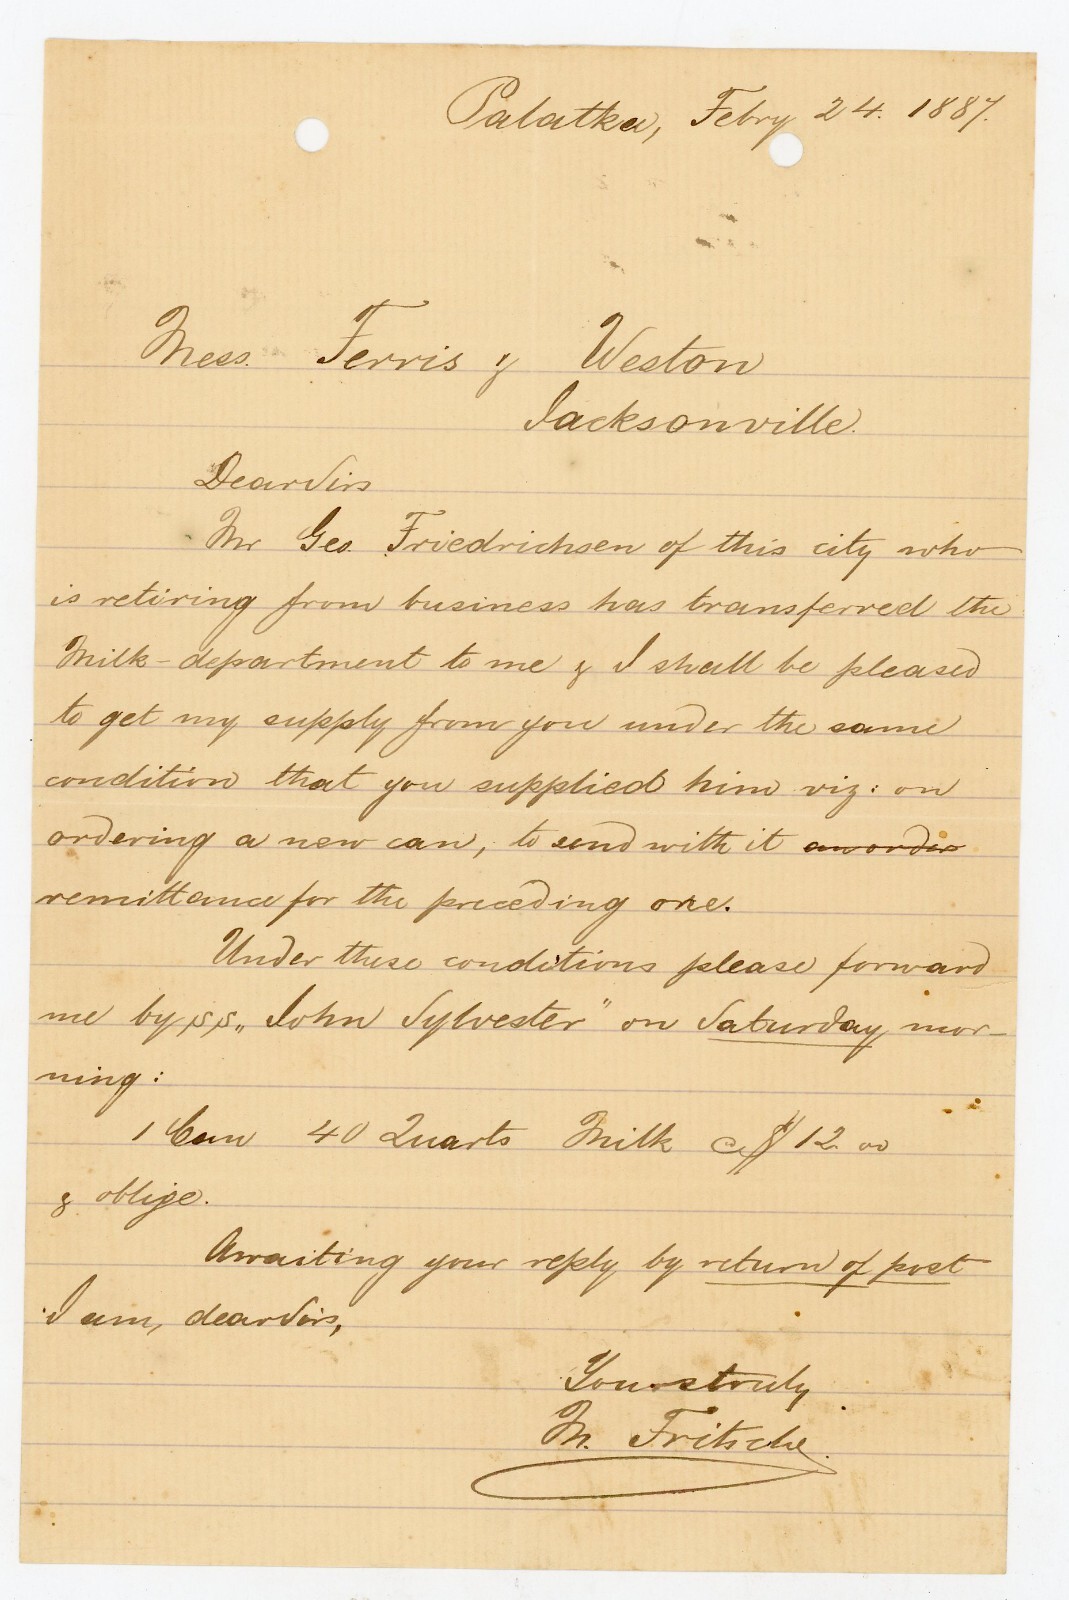 Palatka, Febry 24. 1887.
Mess. Ferris & Weston
Jacksonville.
Dear Sirs
Mr Geo. Friedrichsen of this city who
is retiring from business has transferred the
Milk-department to me & I shall be pleased
to get my supply from you under the same
condition that you supplied him viz: on
ordering a new can, to send with it an order
remittance for the preceding one.
Under these conditions please forward
me by S.S. „John Sylvester" on Saturday mor-
ning:
1 Can 40 Quarts Milk $12 00
& oblige.
Awaiting your reply by return of post
I am, dear Sirs,
Yours truly
M. Fritsche.